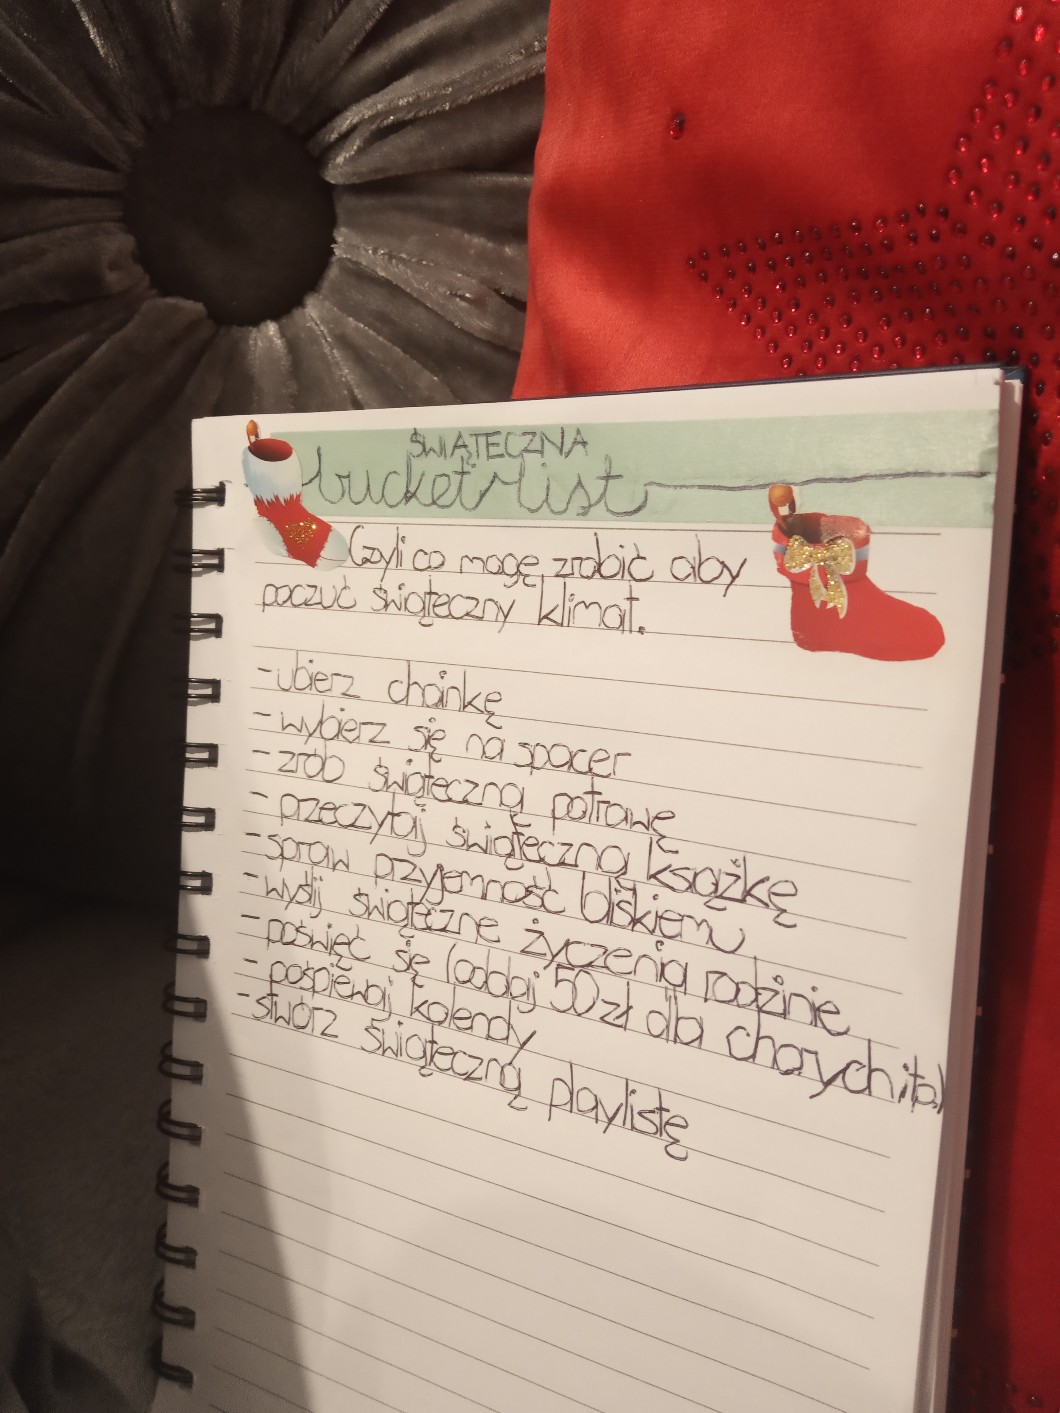 ŚWIĄTECZNA
bucket list
Czyli co mogę zrobić aby
poczuć świąteczny klimat.
-ubierz choinkę
-wybierz się na spacer
-zrób świąteczną potrawę
-przeczytaj świąteczną książkę
-spraw przyjemność bliskiemu
-wyślij świąteczne życzenia rodzinie
-poświęć się (oddaj 50 zł dla chorych itp.)
-pośpiewaj kolendy
-stwórz świąteczną playlistę